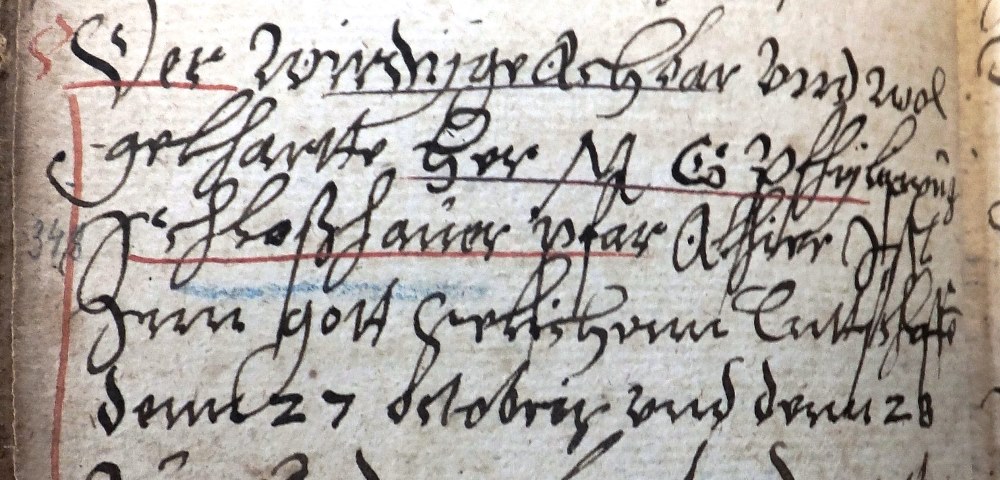 Der wirdige Achbar vnd wol
gelharte Her M G Philippus
Schloßhauer pfar Alhier Ist
Inn gott Seelichenn Entschlaffe
denn 27 octobris vnd denn 28